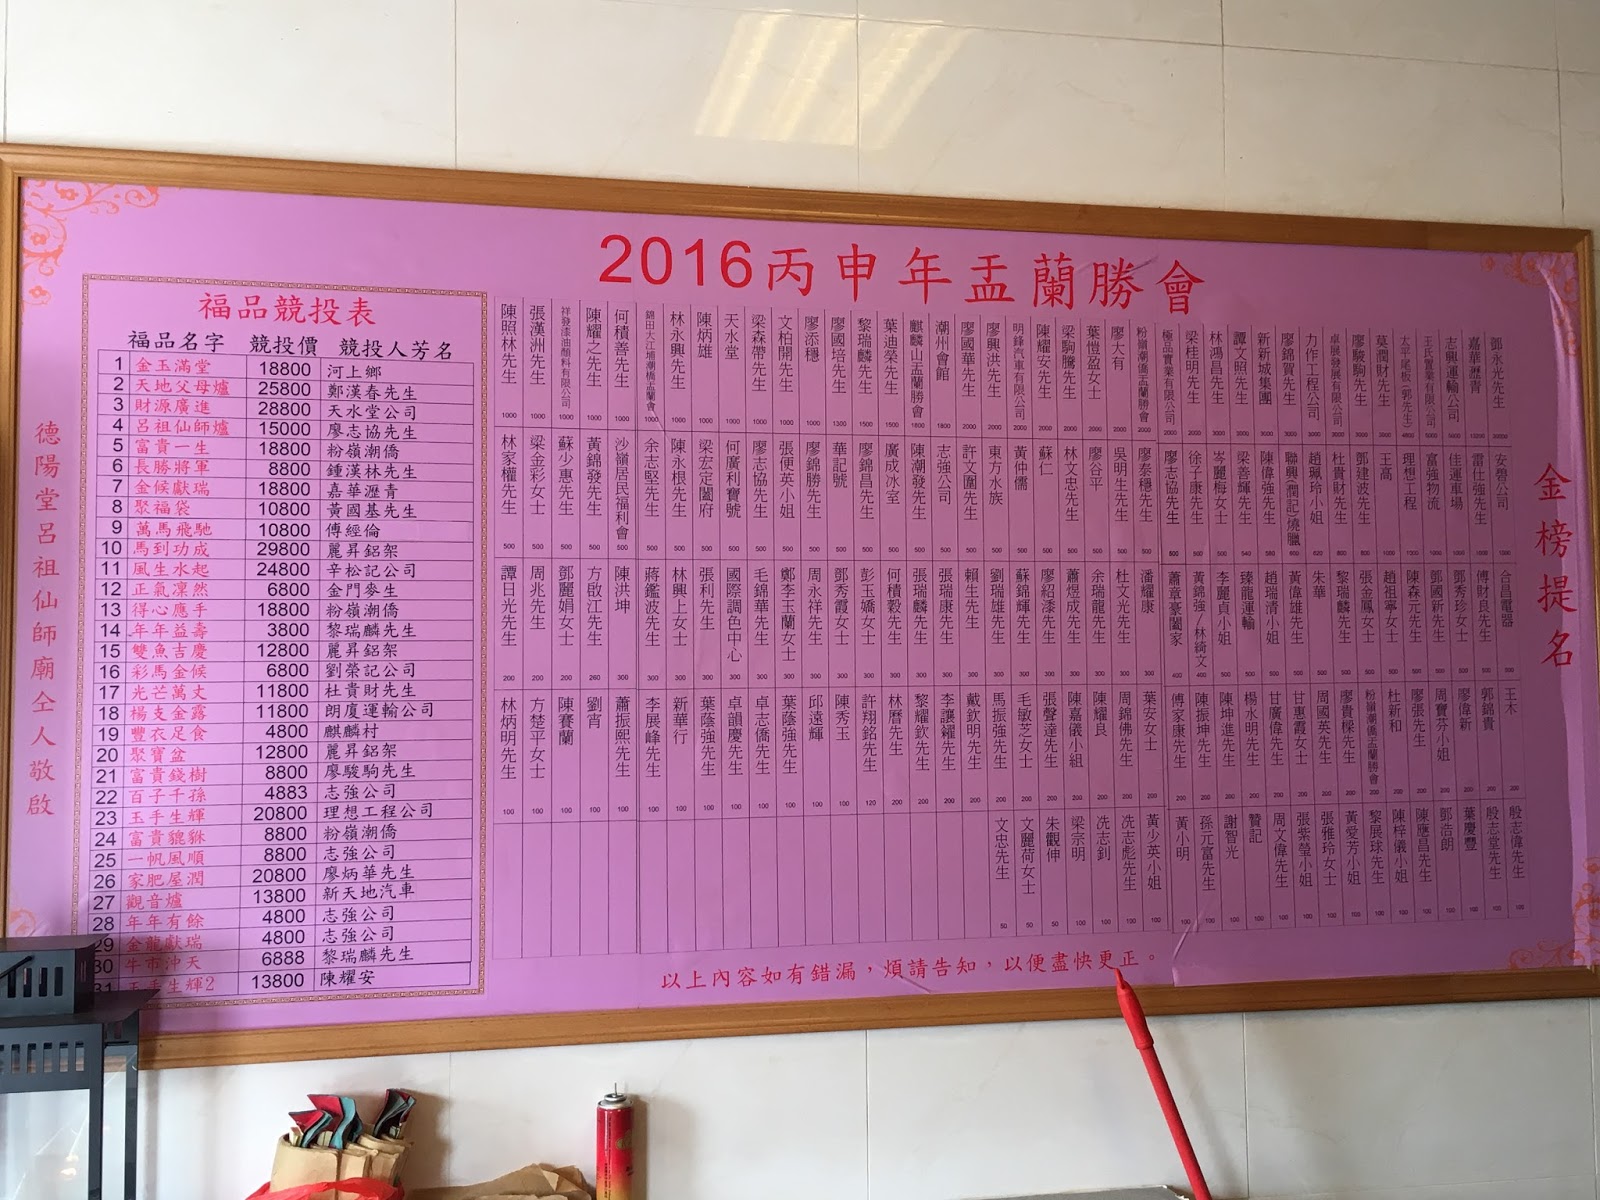 2016丙申年盂蘭勝會
金榜提名
德陽堂呂祖仙師廟仝人敬啟
福品競投表
福品名字 競投價 競投人芳名
1 金玉滿堂 18800 河上鄉
2 天地父母爐 25800 鄭漢春先生
3 財源廣進 28800 天水堂公司
4 呂祖仙師爐 15000 廖志協先生
5 富貴一生 18800 粉嶺潮僑
6 長勝將軍 8800 鍾漢林先生
7 金候獻瑞 18800 嘉華瀝青
8 聚福袋 10800 黃國基先生
9 萬馬飛馳 10800 傅經倫
10 馬到功成 29800 麗昇鋁架
11 風生水起 24800 辛松記公司
12 正氣凜然 6800 金門麥生
13 得心應手 18800 粉嶺潮僑
14 年年益壽 3800 黎瑞麟先生
15 雙魚吉慶 12800 麗昇鋁架
16 彩馬金候 6800 劉榮記公司
17 光芒萬丈 11800 杜貴財先生
18 楊支金露 11800 朗廈運輸公司
19 豐衣足食 4800 麒麟村
20 聚寶盆 12800 麗昇鋁架
21 富貴錢樹 8800 廖駿駒先生
22 百子千孫 4883 志強公司
23 玉手生輝 20800 理想工程公司
24 富貴貔貅 8800 粉嶺潮僑
25 一帆風順 8800 志強公司
26 家肥屋潤 20800 廖炳華先生
27 觀音爐 13800 新天地汽車
28 年年有餘 4800 志強公司
29 金龍獻瑞 4800 志強公司
30 牛市沖天 6888 黎瑞麟先生
31 玉手生輝2 13800 陳耀安
鄧永光先生
嘉華瀝青
志興運輸公司
王氏實業有限公司
太平尾板(郭先生)
莫潤財先生
廖駿駒先生
卓展發展有限公司
力作工程公司
廖錦賀先生
新新城集團
譚文照先生
林鴻昌先生
梁桂明先生
極品實業有限公司
粉嶺潮僑盂蘭勝會
廖大有
葉愷盈女士
梁駒騰先生
陳耀安先生
明鋒汽車有限公司
廖興洪先生
廖國華先生
潮州會館
麒麟山盂蘭勝會
葉迪榮先生
黎瑞麟先生
廖國培先生
廖添穩
文柏開先生
梁森帶先生
天水堂
陳炳雄
林永興先生
錦田大江埔潮僑盂蘭會
何積善先生
陳耀之先生
祥發漆油顏料有限公司
張漢洲先生
陳照林先生
安碧公司
雷仕強先生
佳運車場
富強物流
理想工程
王高
鄧建波先生
杜貴財先生
趙珮玲小姐
聯興(潤記)燒臘
陳偉強先生
梁善輝先生
岑麗梅女士
徐子康先生
廖志協先生
廖泰穩先生
吳明生先生
廖谷平
林文忠先生
蘇仁
黃仲儒
東方水族
許文圍先生
志強公司
陳潮發先生
廣成冰室
廖錦昌先生
華記號
廖錦勝先生
張便英小姐
廖志協先生
何廣利寶號
梁宏定闔府
陳永根先生
余志堅先生
沙嶺居民福利會
黃錦發先生
蘇少惠先生
梁金彩女士
林家權先生
合昌電器
傅財良先生
鄧秀珍女士
鄧國新先生
陳森元先生
趙祖寧女士
張金鳳女士
黎瑞麟先生
朱華
黃偉雄先生
趙瑞清小姐
臻龍運輸
李麗貞小姐
黃錦強/林綺文
蕭章豪闔家
潘耀康
杜文光先生
余瑞龍先生
蕭煜成先生
廖紹漆先生
蘇錦輝先生
劉瑞雄先生
賴生先生
張瑞康先生
張瑞麟先生
何積穀先生
彭玉嬌女士
鄧秀霞女士
周永祥先生
鄭李玉蘭女士
毛錦華先生
國際調色中心
張利先生
林興上女士
蔣鑑波先生
陳洪坤
方啟江先生
鄧麗娟女士
周兆先生
譚日光先生
王木
郭錦貴
廖偉新
周寶芬小姐
廖張先生
杜新和
粉嶺潮僑盂蘭勝會
廖貴樑先生
周國英先生
甘惠霞女士
甘廣偉先生
楊水明先生
陳坤進先生
陳振坤先生
傅家康先生
葉安女士
周錦佛先生
陳耀良
陳嘉儀小組
張聲達先生
毛敏芝女士
馬振強先生
戴欽明先生
李讓鑼先生
黎耀欽先生
林曆先生
許翔銘先生
陳秀玉
邱遠輝
葉蔭強先生
卓志僑先生
卓韻慶先生
葉蔭強先生
新華行
李展峰先生
蕭振熙先生
劉宵
陳賽蘭
方楚平女士
林炳明先生
殷志偉先生
殷志堂先生
葉慶豐
鄧浩朗
陳應昌先生
陳梓儀小姐
黎展球先生
黃愛芳小姐
張雅玲女士
張紫瑩小姐
周文偉先生
贊記
謝智光
孫元富先生
黃小明
黃少英小姐
冼志彪先生
冼志釗
梁宗明
朱觀伸
文麗荷女士
文忠先生
以上內容如有錯漏，煩請告知，以便盡快更正。